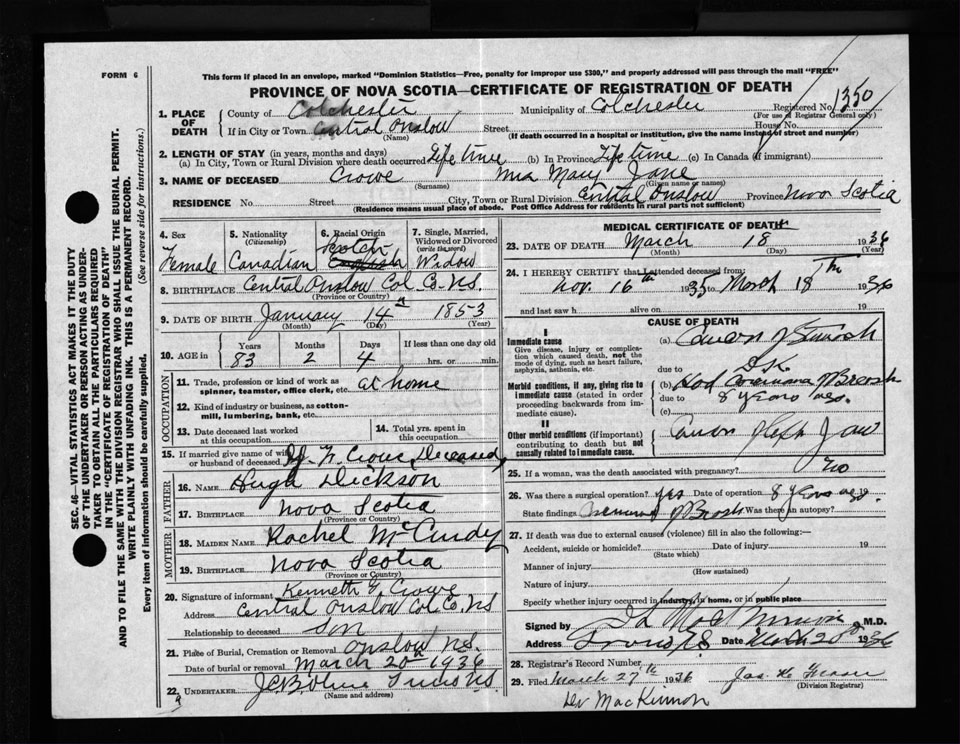 FORM 6
This form if placed in an envelope, marked "Dominion Statistics—Free, penalty for improper use $300," and properly addressed will pass through the mail "FREE"
PROVINCE OF NOVA SCOTIA—CERTIFICATE OF REGISTRATION OF DEATH
1. PLACE OF DEATH County of Colchester Municipality of Colchester Registered No. 1350
(For use of Registrar General only)
If in City or Town Central Onslow Street House No.
(Name) (If death occurred in a hospital or institution, give the name instead of street and number)
2. LENGTH OF STAY (in years, months and days)
(a) In City, Town or Rural Division where death occurred Life time (b) In Province Life time (c) In Canada (if immigrant)
3. NAME OF DECEASED Crowe Mrs Mary Jane
(Surname) (Given name or names)
RESIDENCE No. Street City, Town or Rural Division Central Onslow Province Nova Scotia
(Residence means usual place of abode. Post Office Address for residents in rural parts not sufficient)
4. Sex Female
5. Nationality (Citizenship) Canadian
6. Racial Origin Scotch English
7. Single, Married, Widowed or Divorced (write the word) Widow
8. BIRTHPLACE Central Onslow Col. Co. N.S.
(Province or Country)
9. DATE OF BIRTH January 14th 1853
(Month) (Day) (Year)
10. AGE in Years Months Days If less than one day old
83 2 4 hrs. or min.
OCCUPATION
11. Trade, profession or kind of work as spinner, teamster, office clerk, etc. at home
12. Kind of industry or business, as cotton-mill, lumbering, bank, etc.
13. Date deceased last worked at this occupation
14. Total yrs. spent in this occupation
15. If married give name of wife or husband of deceased Crowe, Deceased
FATHER
16. Name Hugh Dickson
17. Birthplace Nova Scotia
(Province or Country)
MOTHER
18. Maiden Name Rachel McCurdy
19. Birthplace Nova Scotia
(Province or Country)
20. Signature of informant Kenneth G Crowe
Address Central Onslow Col. Co. NS
Relationship to deceased Son
21. Place of Burial, Cremation or Removal Onslow N.S.
Date of burial or removal March 20th 1936
22. UNDERTAKER Truro NS
(Name and address)
MEDICAL CERTIFICATE OF DEATH
23. DATE OF DEATH March 18 1936
(Month) (Day) (Year)
24. I HEREBY CERTIFY that I attended deceased from:
Nov. 16th 1935 to March 18th 1936
and last saw h alive on 19
CAUSE OF DEATH
I
Immediate cause
Give disease, injury or complication which caused death, not the mode of dying, such as heart failure, asphyxia, asthenia, etc.
(a)
due to
Morbid conditions, if any, giving rise to immediate cause (stated in order proceeding backwards from immediate cause).
(b) Had Carcinoma of Breast
due to 8 years ago.
(c)
II
Other morbid conditions (if important) contributing to death but not causally related to immediate cause.
Cancer of left Jaw
25. If a woman, was the death associated with pregnancy? no
26. Was there a surgical operation? yes Date of operation 8 years ago 19
State findings Carcinoma of Breast Was there an autopsy?
27. If death was due to external causes (violence) fill in also the following:—
Accident, suicide or homicide? Date of injury 19
(State which)
Manner of injury
(How sustained)
Nature of injury
Specify whether injury occurred in industry, in home, or in public place
Signed by M.D.
Address Truro N.S. Date March 20th 1936
28. Registrar's Record Number
29. Filed March 27th 1936 Jas. H. Fraser
(Division Registrar)
Dr MacKinnon
SEC. 46—VITAL STATISTICS ACT MAKES IT THE DUTY
OF THE UNDERTAKER OR PERSON ACTING AS UNDER-
TAKER TO OBTAIN ALL THE PARTICULARS REQUIRED
IN THE "CERTIFICATE OF REGISTRATION OF DEATH"
AND TO FILE THE SAME WITH THE DIVISION REGISTRAR WHO SHALL ISSUE THE BURIAL PERMIT.
WRITE PLAINLY WITH UNFADING INK. THIS IS A PERMANENT RECORD.
Every item of information should be carefully supplied. (See reverse side for instructions.)